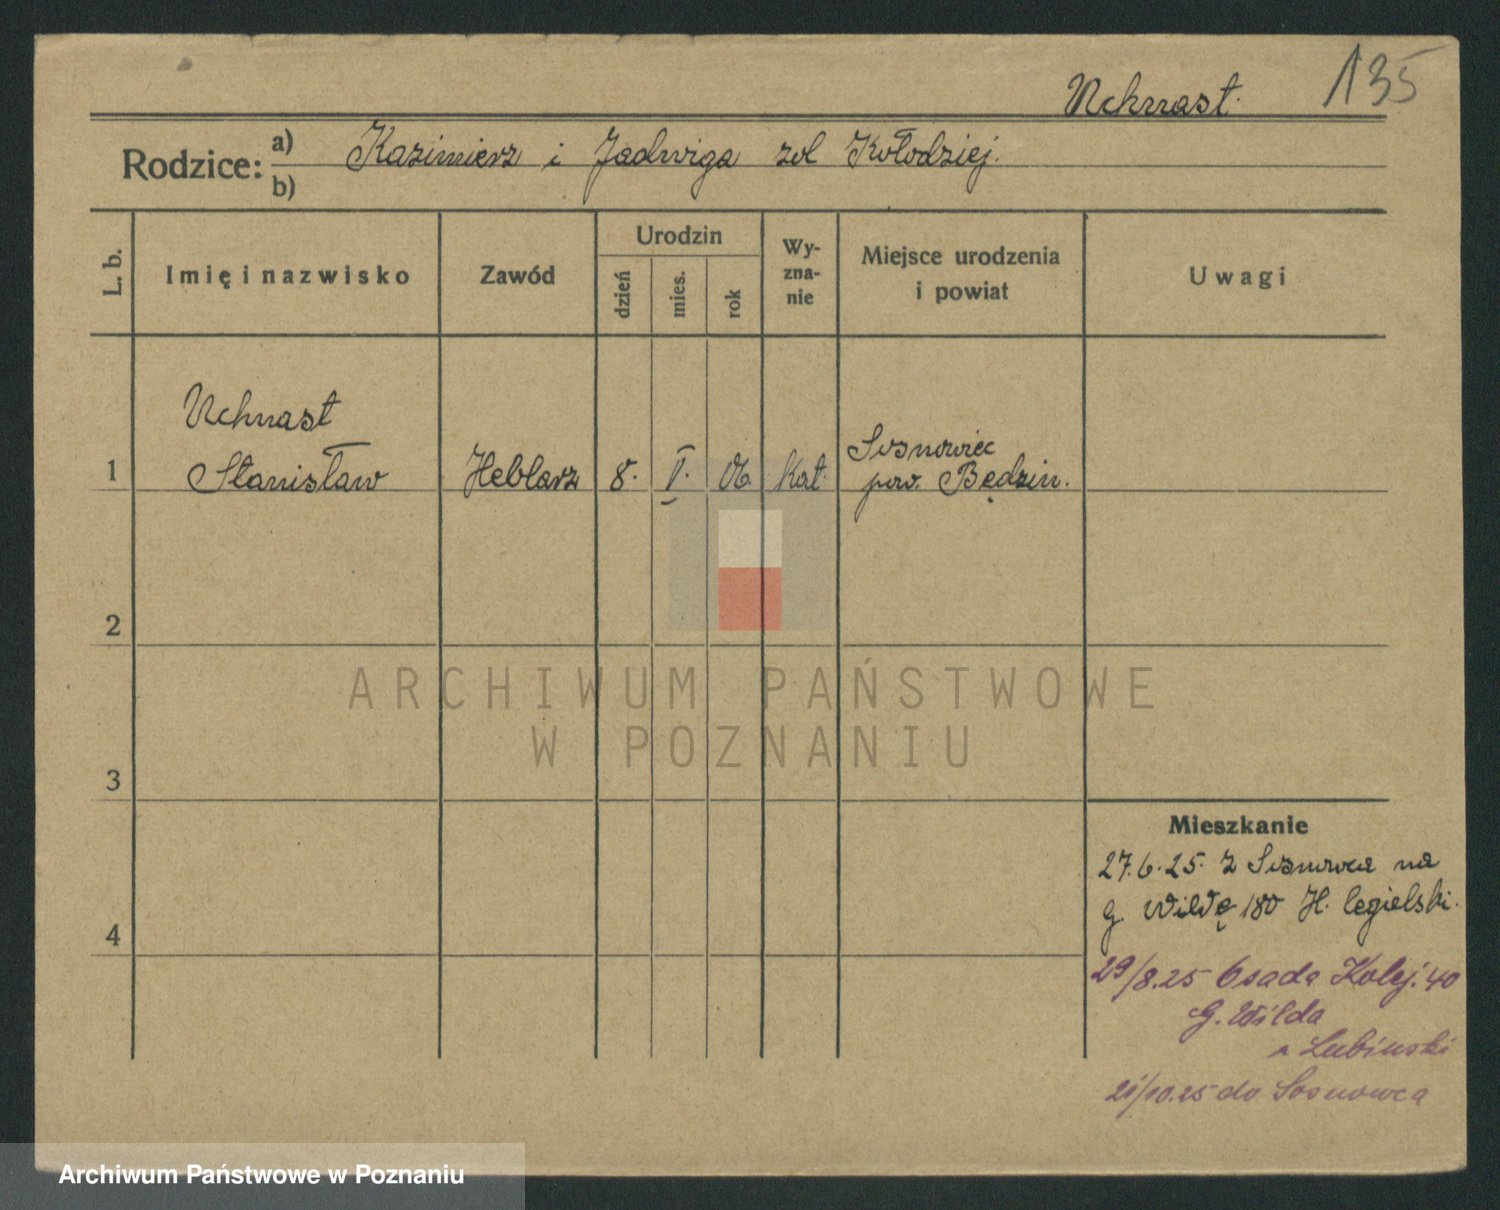 135
Uchnast.
Rodzice: a) Kazimierz i Jadwiga zol Kołodziej.
b)
L. b.
Imię i nazwisko
Zawód
Urodzin
dzień
mies.
rok
Wy-
zna-
nie
Miejsce urodzenia
i powiat
Uwagi
Uchnast
1 Stanisław
Heblarz
8. V. 06. Kat.
Sosnowiec
pow. Będzin.
2
ARCHIWUM PAŃSTWOWE
W POZNANIU
3
4
Mieszkanie
27.6.25. z Sosnowca na
g Wildę 180 H. Cegielski.
29/8.25 Osada Kolej. 40
G. Wilda
u Lubinski
21/10.25 do Sosnowca
Archiwum Państwowe w Poznaniu